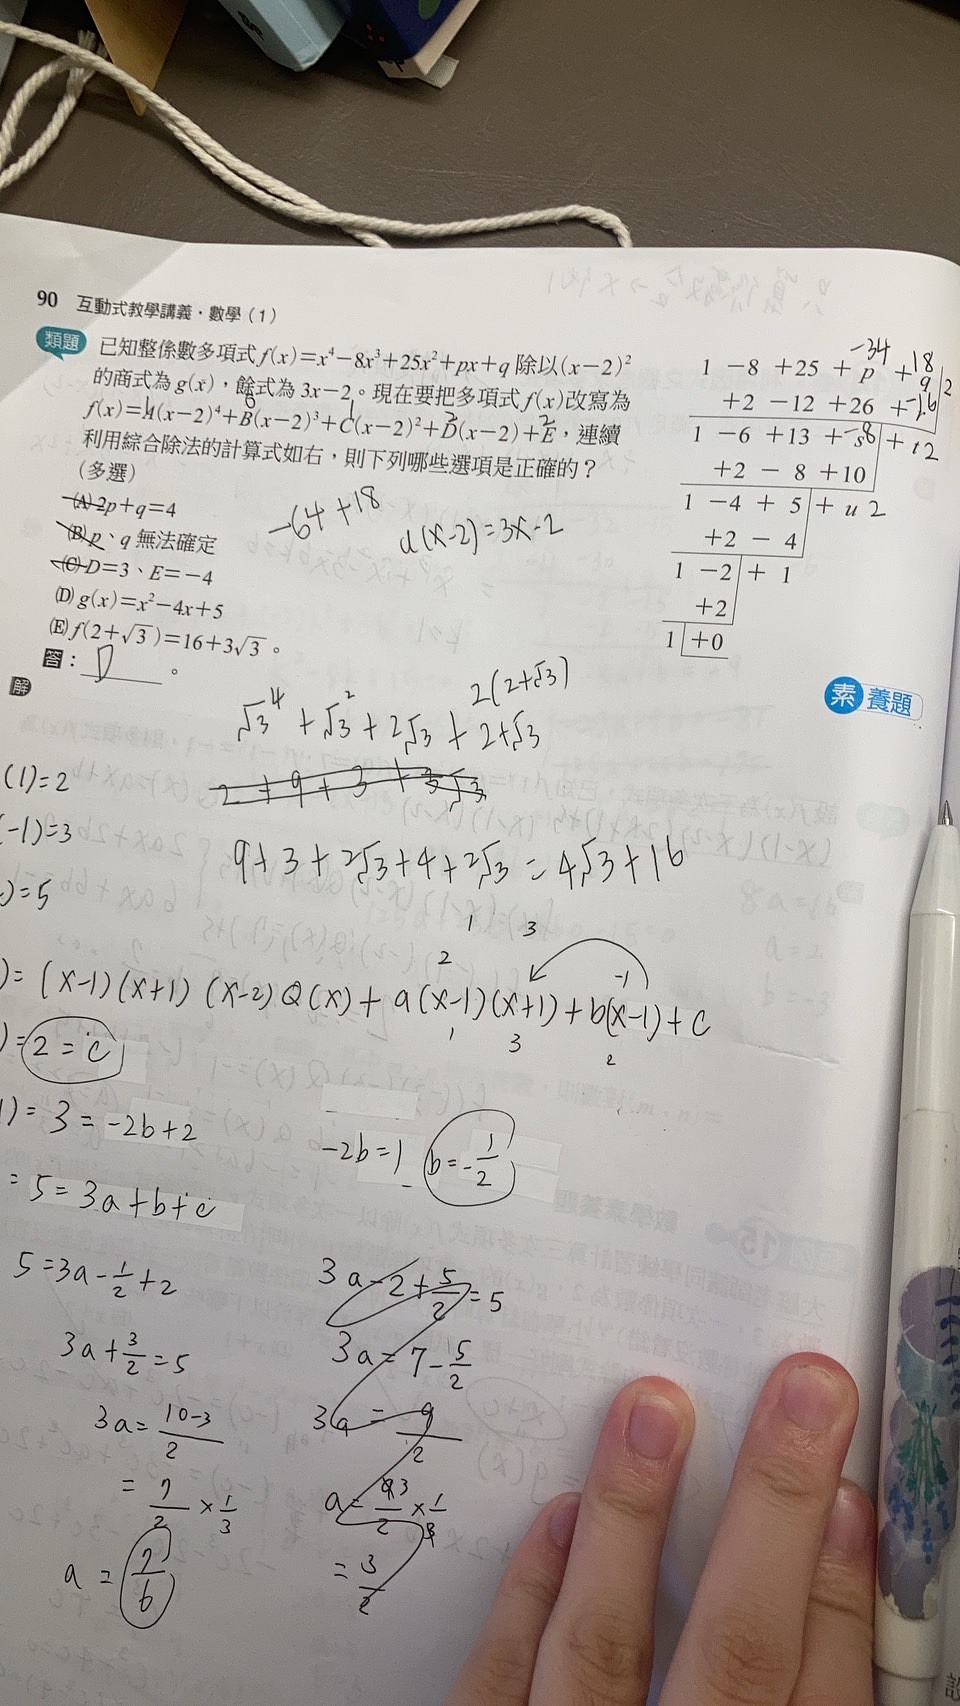 90 互動式教學講義・數學(1)
類題 已知整係數多項式 f(x)=x⁴−8x³+25x²+px+q 除以 (x−2)²
的商式為 g(x),餘式為 3x−2。現在要把多項式 f(x) 改寫為
f(x)=A(x−2)⁴+B(x−2)³+C(x−2)²+D(x−2)+E,連續
利用綜合除法的計算式如右,則下列哪些選項是正確的?
(多選)
(A) 2p+q=4
(B) p、q 無法確定
(C) D=3、E=−4
(D) g(x)=x²−4x+5
(E) f(2+√3)=16+3√3。
答:D。
解
−34 18
1 −8 +25 +p +q 2
+2 −12 +26 +
1 −6 +13 +s −8 +12
+2 −8 +10
1 −4 +5 +u 2
+2 −4
1 −2 +1
+2
1 +0
−64+18
a(x−2)=3x−2
素養題
2(2+√3)
√3⁴+√3²+2√3+2+√3
2+9+3+3√3
9+3+2√3+4+2√3=4√3+16
(1)=2
−1)=3
)=5
1 3
2 −1
)=(x−1)(x+1)(x−2)Q(x)+a(x−1)(x+1)+b(x−1)+c
1 3 2
)=2=c
1)=3=−2b+2
−2b=1 b=−1/2
=5=3a+b+c
5=3a−1/2+2
3a+3/2=5
3a=10−3/2
=7/2×1/3
a=7/6
3a−2+5/2=5
3a=7−5/2
3a=9/2
a=9 3/2×1/3
=3/2